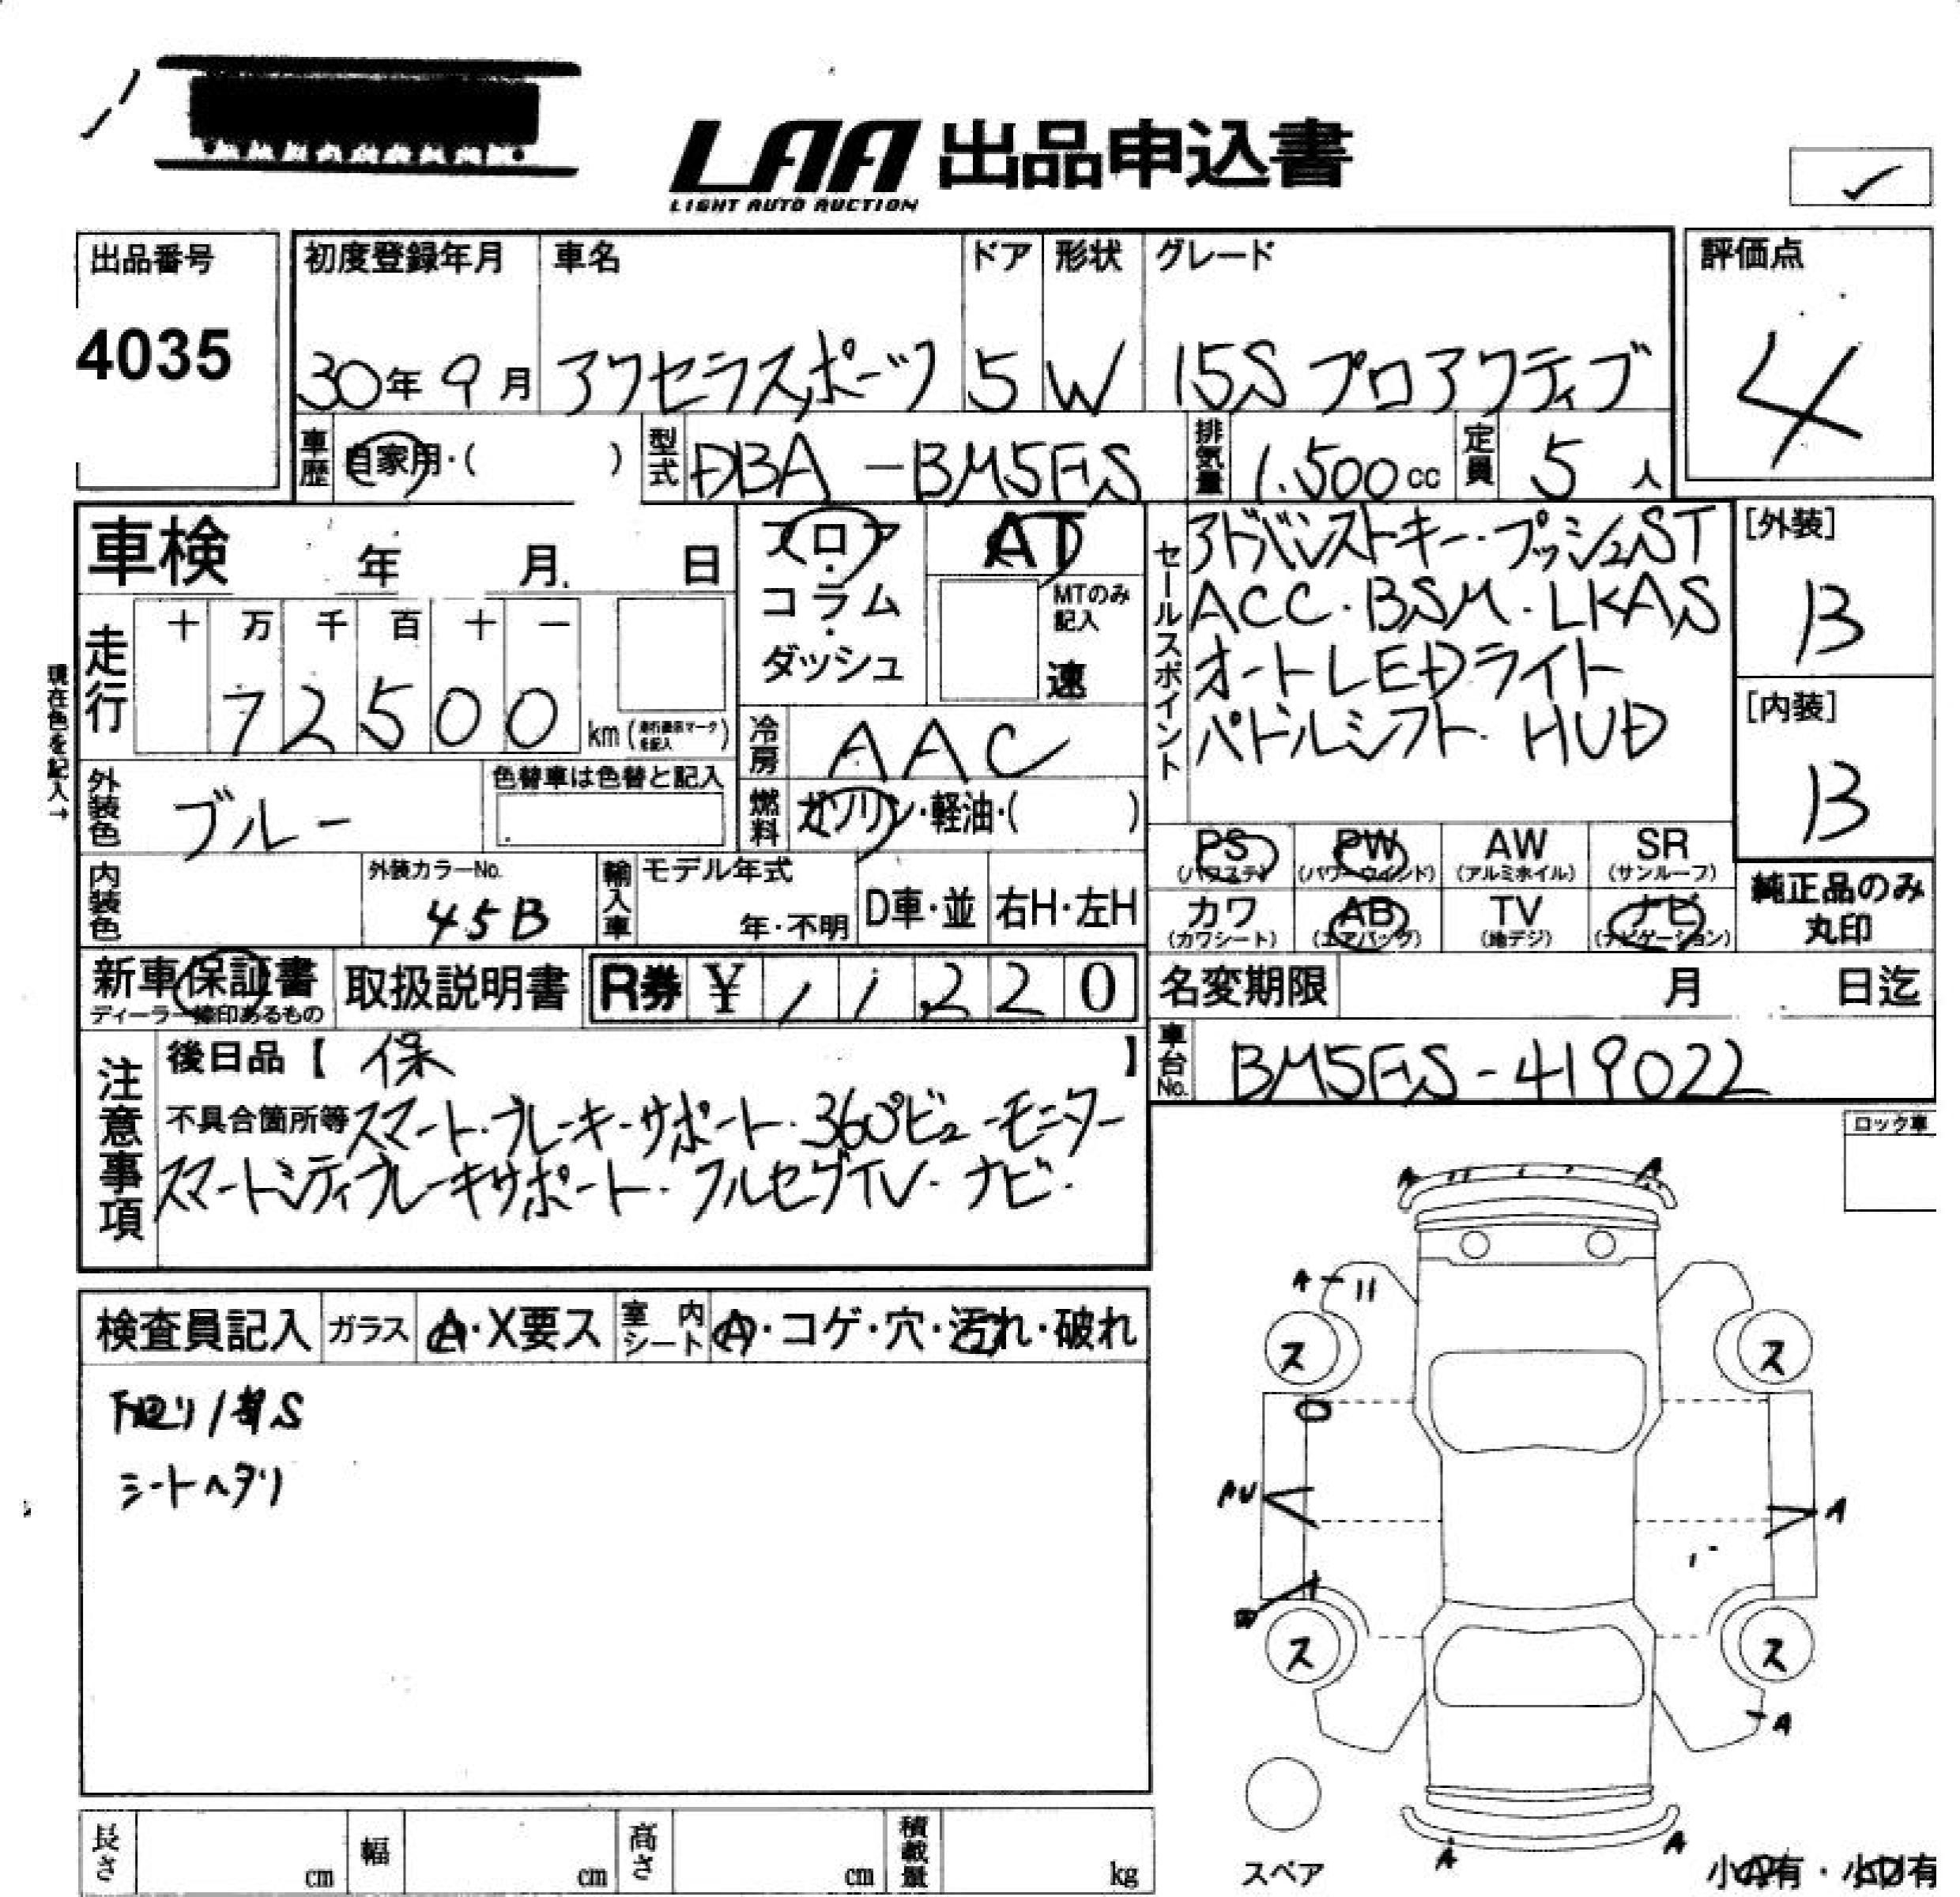 LAA 出品申込書
LIGHT AUTO AUCTION
出品番号
4035
初度登録年月 車名 ドア 形状 グレード
30年 9月 アクセラスポーツ 5 W 15S プロアクティブ
評価点
4
車歴 自家用・( ) 型式 DBA-BM5FS 排気量 1,500cc 定員 5人
車検 年 月 日
フロア・コラム・ダッシュ
AT
MTのみ記入
速
セールスポイント
アドバンストキー・プッシュST
ACC・BSM・LKAS
オートLEDライト
パドルシフト HUD
[外装]
B
[内装]
B
現在色を記入→
走行 十 万 千 百 十 一
72500 km
冷房 AAC
外装色 ブルー 色替車は色替と記入
燃料 ガソリン・軽油・( )
内装色 外装カラーNo. 45B
輸入車 モデル年式 年・不明 D車・並 右H・左H
PS PW AW SR
(パワステ) (パワーウインド) (アルミホイル) (サンルーフ)
カワ AB TV ナビ
(カワシート) (エアバッグ) (地デジ) (ナビゲーション)
純正品のみ
丸印
新車保証書 取扱説明書 R券 ¥11,220
ディーラー捺印あるもの
名変期限 月 日迄
車台No. BM5FS-419022
注意事項
後日品【 保 】
不具合箇所等 スマート・ブレーキ・サポート・360°ビューモニター
スマートシティブレーキサポート・フルセグTV・ナビ・
ロック車
検査員記入 ガラス A・X要ス 室内シート A・コゲ・穴・汚れ・破れ
シートヘタリ
A A
A
ス ス
AU A
ス ス
A
A A
スペア
長さ cm 幅 cm 高さ cm 積載量 kg